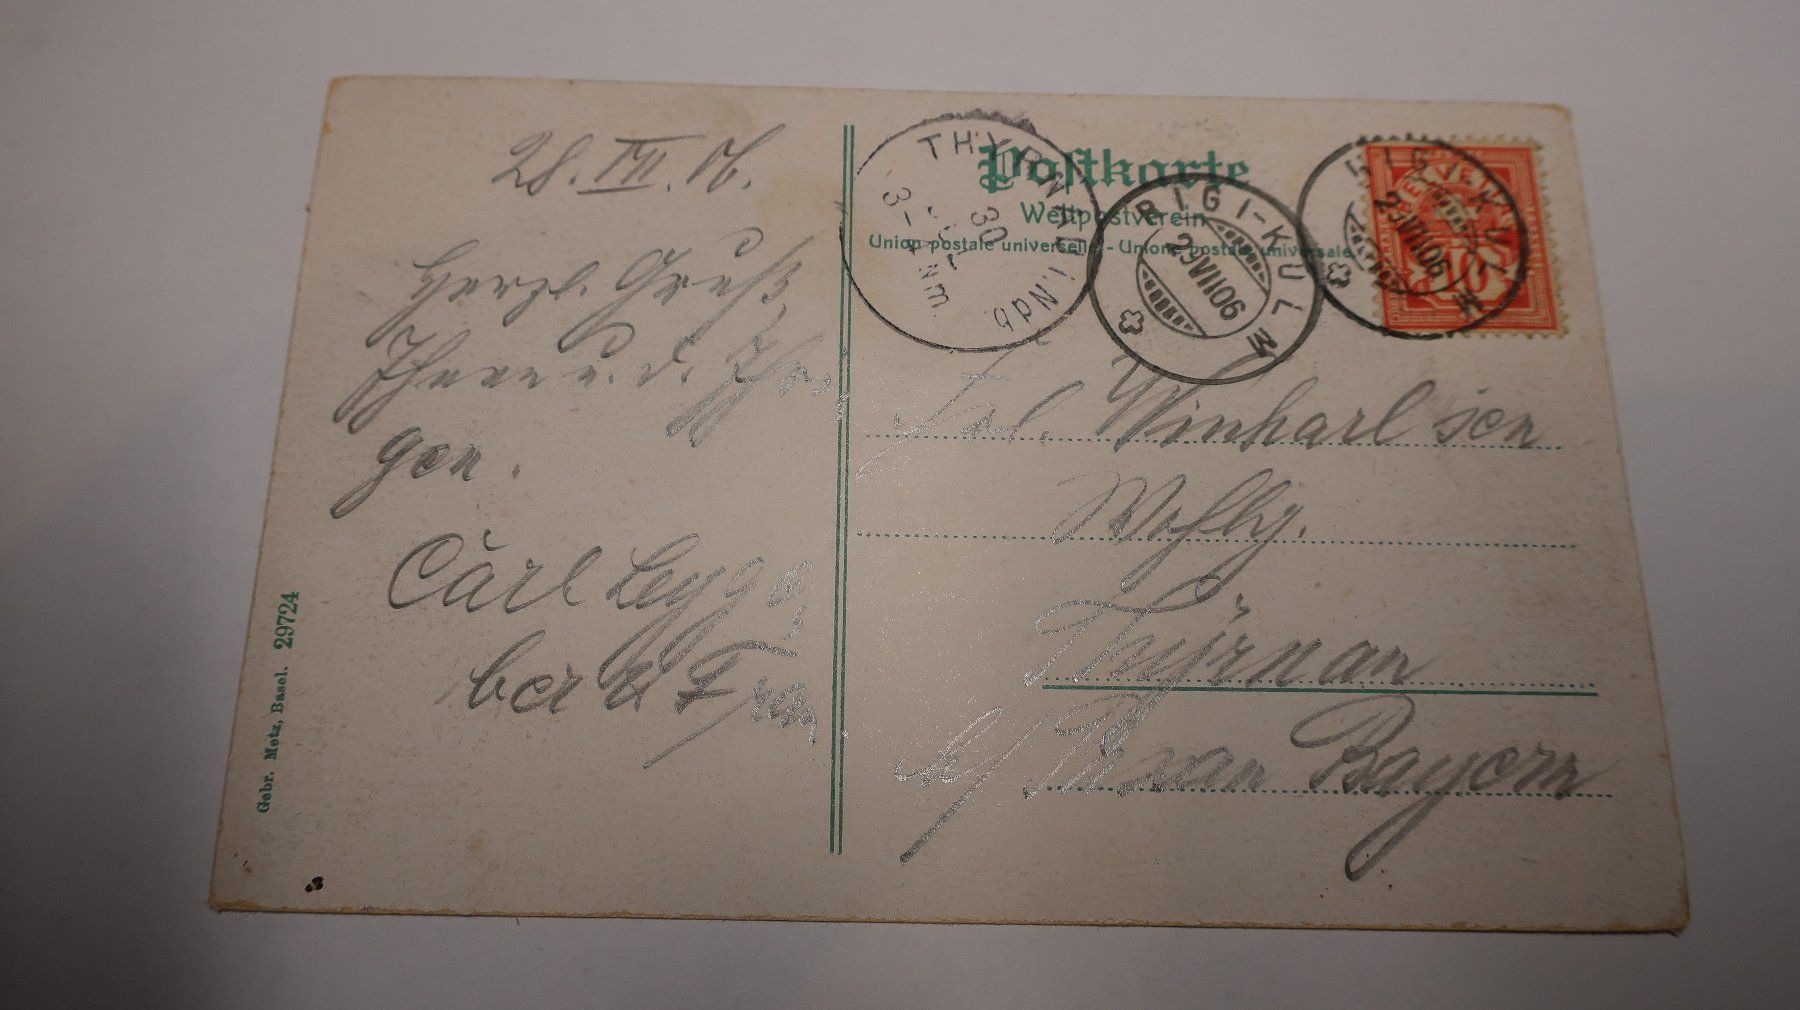 28. VII. 06.
Herzl. Gruß
Ihnen u. d. Ihri
gen.
Carl
ber
Postkarte
Weltpostverein
Union postale universelle - Unione postale universale
THYRNAU i. Ndb.
30
3-4 Nm.
RIGI-KULM
29 VII 06
RIGI-KULM
29 VII 06
HELVETIA
10
Winharl sen
Thyrnau
b/ Passau Bayern
Gebr. Metz, Basel. 29724